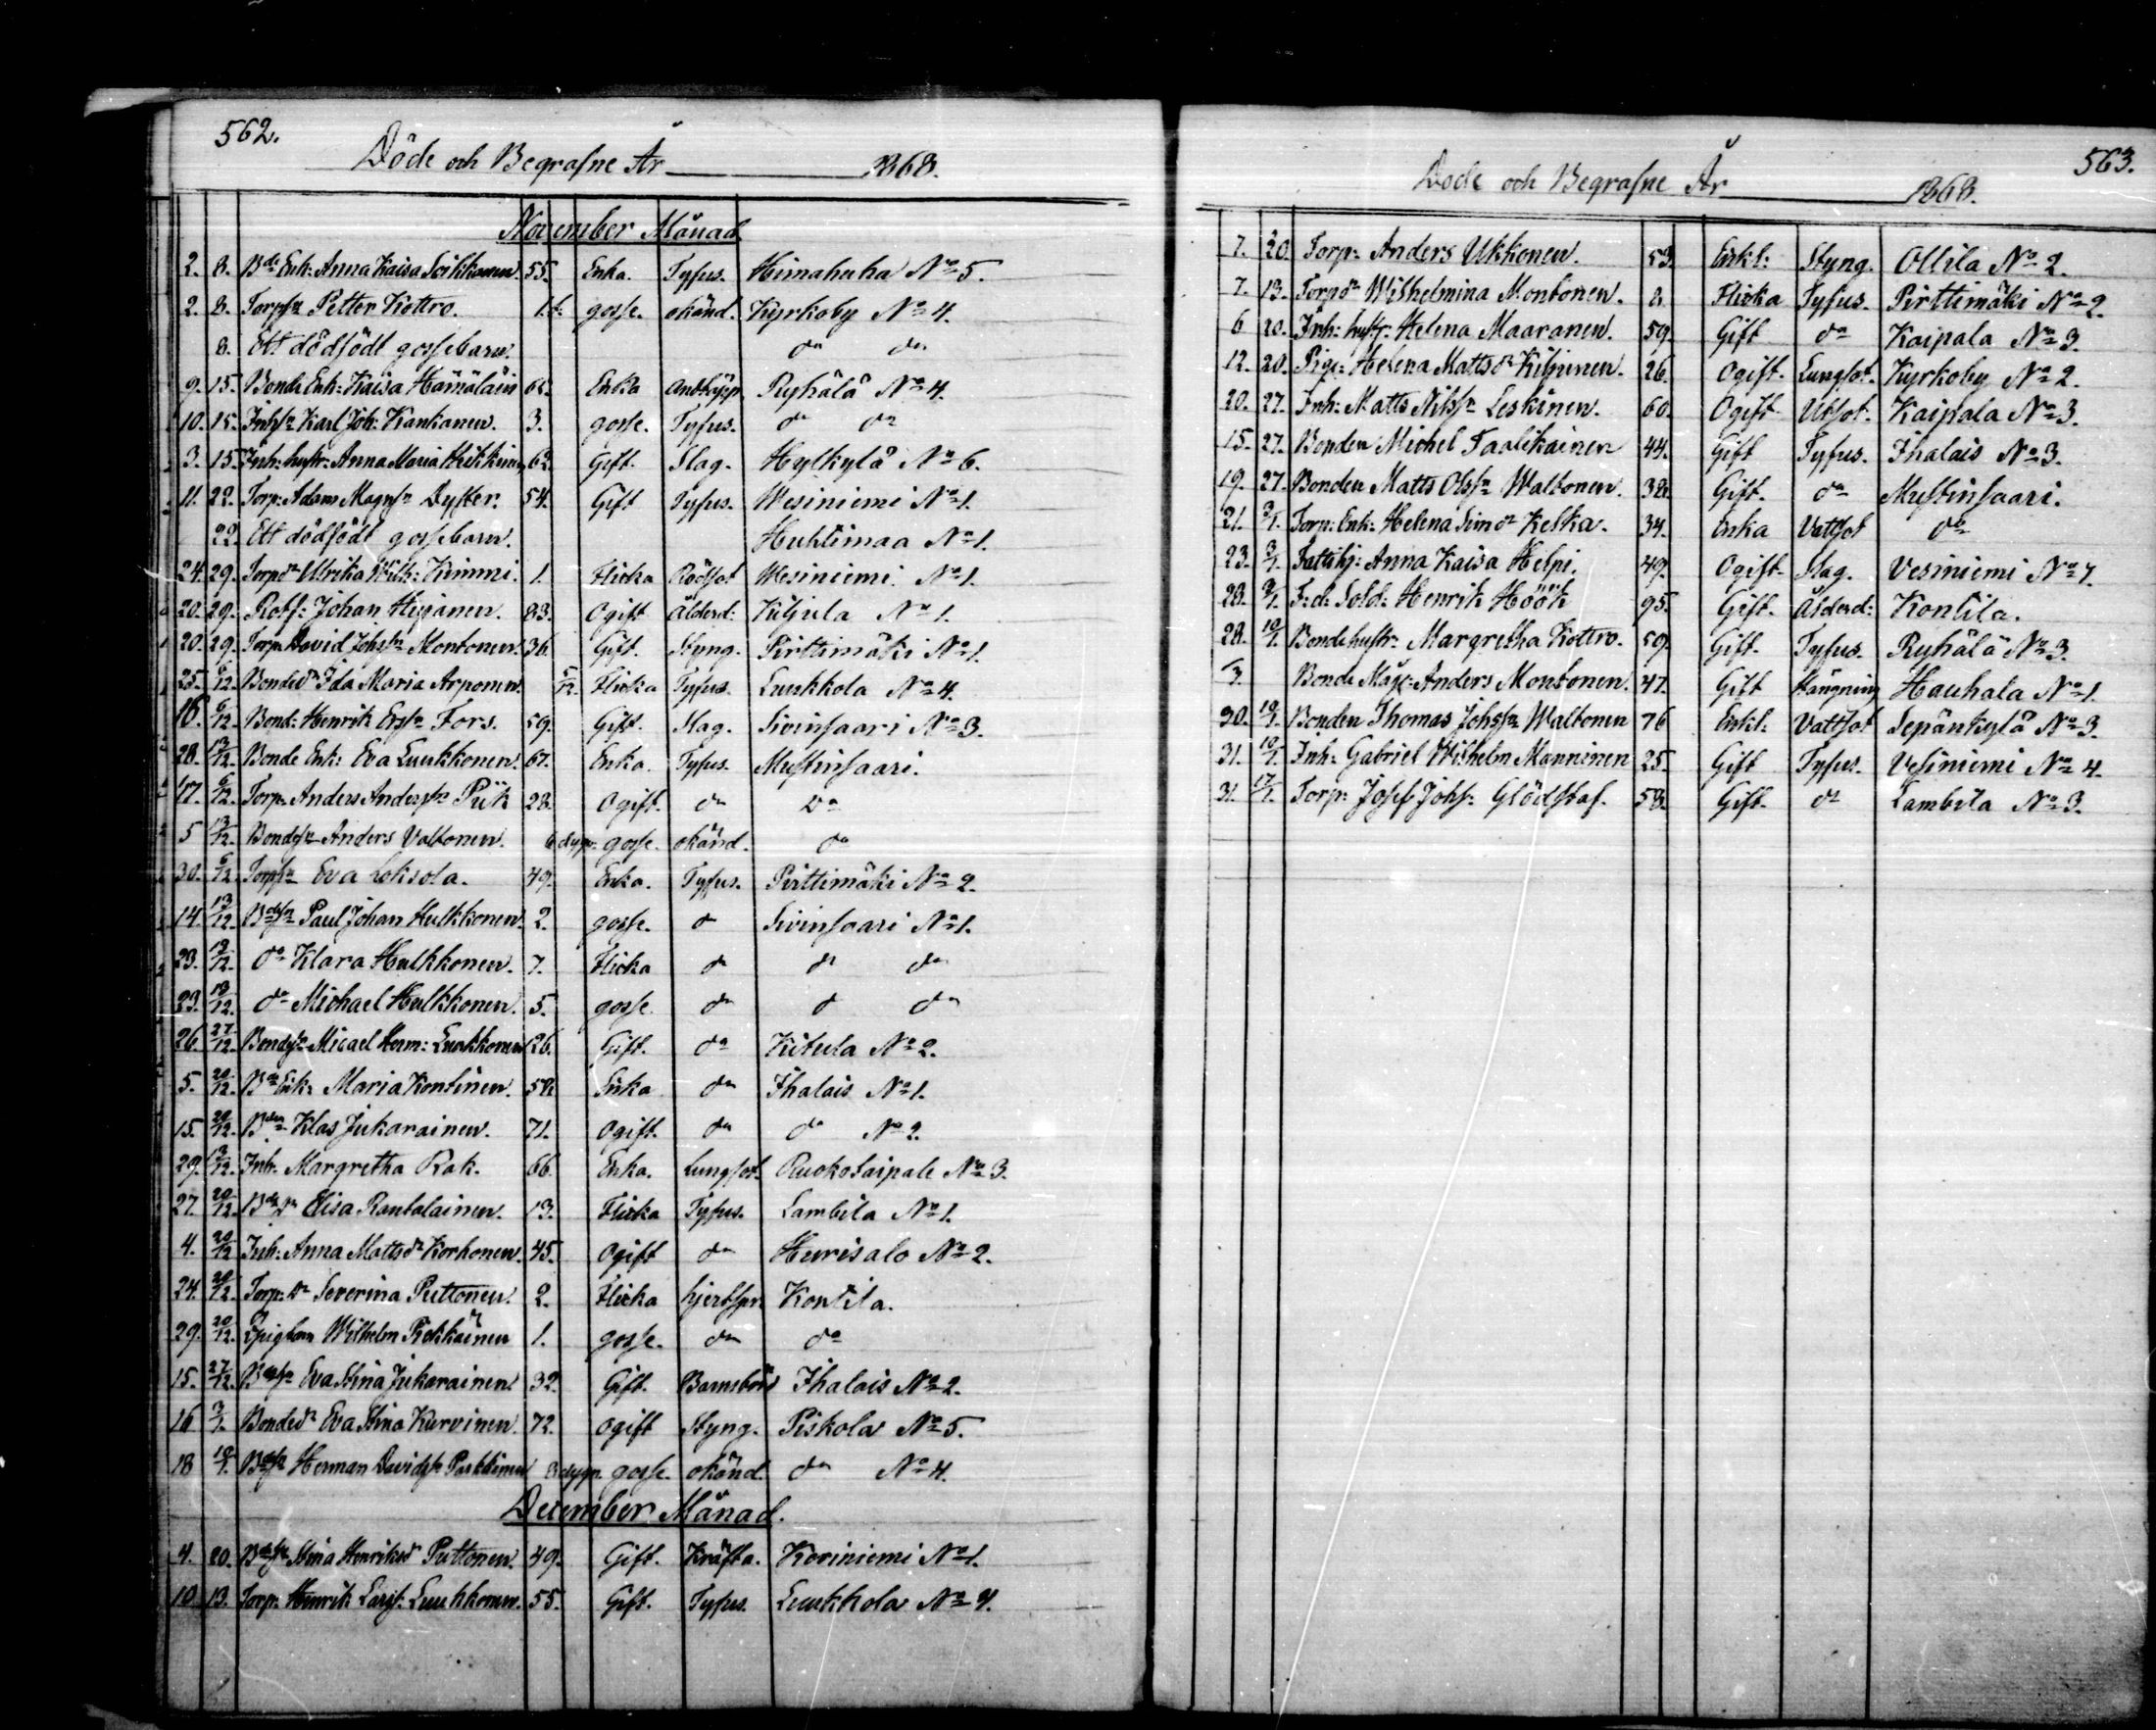 562.
Döde och Begrafne År 1868.
November Månad
2. 8. Bde Enk: Anna Kaisa Soikkonen. 55. Enka. Tyfus. Himahuha No 5.
2. 8. Torpsn Petter Kottro. 1. gosse. okänd. Kyrkoby No 4.
8. Ett dödfödt gossebarn. do do
9. 15. Bonde Enk: Kaisa Hämäläin Enka Andtäpp. Ryhälä No 4.
10. 15. Inhsn Karl Joh: Kankanen. 3. gosse. Tyfus. do do
3. 15. Inh: hustr: Anna Maria 62. Gift. Slag. Hylkylä No 6.
11. 22. Torp: Adam Magnssn Dyster. 54. Gift Tyfus. Wesiniemi No 1.
22. Ett dödfödt gossebarn. Huhtimaa No 1.
24. 29. Torpdr Ulrika Wilh: Kimmi. 1. Flicka Rödsot Wesiniemi No 1.
20. 29. Rotf: Johan 83. Ogift Ålderd: Kiljula No 1.
20. 29. Torp: David Johssn Montonen. 36. Gift. Styng. Pirttimäki No 1.
25. 6/12. Bondedr Ida Maria Arponen. 5/12. Flicka Tyfus. Luukkola No 4.
16. 6/12 Bond: Henrik Erssn Fors. 59. Gift. Slag. Sivinsaari No 3.
28. 13/12 Bonde Enk: Eva Luukkonen. 67. Enka. Tyfus. Mustinsaari.
17. 6/12. Torp: Anders Anderssn Piik 28. Ogift. do do
5 13/12. Bondesn Anders Valtonen. 6 dygn. gosse. okänd. do
30. 6/12. Eva Loksola. 49. Enka. Tyfus. Pirttimäki No 2.
14. 13/12. Bdesn Paul Johan Hulkkonen. 2. gosse. do Sivinsaari No 1.
23. 13/12. do Klara Hulkkonen. 7. Flicka do do do
23. 13/12. do Michael Hulkkonen. 5. gosse. do do do
26. 27/12. Bondesn Micael Herm: Luukkonen 26. Gift. do Kitula No 2.
5. 20/12. Bde Enk: Maria Kontinen. 58. Enka do Ihalais No 1.
15. 20/12. Bden Klas Jukarainen. 71. Ogift. do do No 2.
29. 13/12. Inh. Margretha Rak. 66. Enka. Lungsot. Ruokotaipale No 3.
27. 20/12. Bdedr Elisa Rantalainen. 13. Flicka Tyfus. Lambila No 1.
4. 20/12 Inh: Anna Mattsdr Korhonen. 45. Ogift do Hurisalo No 2.
24. 20/12. Torp: dr Severina Puttonen. 2. Flicka hjertspr. Kontila.
29. 20/12. Wilhelm Pekkäinen 1. gosse. do do
15. 27/12. Eva Stina Jukarainen. 32. Gift. Barnsbörd Ihalais No 2.
16 3/1. Bondedr Eva Stina Kurvinen. 72. Ogift Styng. Piskola No 5.
18 10/1. Bdesn Herman Davidssn Parkkinen 8 dygn. gosse. okänd. do No 4.
December Månad.
4. 20. Stina Henriksdr Puttonen. 49. Gift. Kräfta. Koviniemi No 1.
10 13. Torp: Henrik Larss: Luukkonen. 55. Gift. Tyfus. Luukkola No 4.
563.
Döde och Begrafne År 1868.
7. 20. Torp: Anders Ukkonen. 53. Enkl: Styng. Ollila No 2.
7. 13. Torpdr Wilhelmina Montonen. 8. Flicka Tyfus. Pirttimäki No 2.
6 20. Inh: hustr: Helena Maaranen. 59. Gift do Kaipala No 3.
12. 20. Pig: Helena Mattsdr Kiljunen. 26. Ogift. Lungsot. Kyrkoby No 2.
20. 27. Inh: Matts Nilssn Leskinen. 60. Ogift Utsot. Kaipala No 3.
15. 27. Bonden Michel Taalikainen 44. Gift Tyfus. Ihalais No 3.
19. 27. Bonden Matts Olssn Waltonen. 38. Gift. do Mustinsaari.
21. 3/1. Torp: Enk: Helena Simdr Kelka. 34. Enka Vattsot do
23. 3/1. Fattihj: Anna Kaisa Helpi. 49. Ogift. Slag. Vesiniemi No 4.
28. 3/1. F.d. Sold: Henrik Höök 95. Gift. Ålderd: Kontila.
28. 10/1. Bondehustr: Margretha Kottro. 59. Gift. Tyfus. Ryhälä No 3.
13. Bonde Måg: Anders Montonen. 47. Gift Hängning Hauhala No 1.
30. 10/1. Bonden Thomas Johssn Waltonen 76 Enkl: Vattsot Sepänkylä No 3.
31. 10/1. Inh: Gabriel Wilhelm Manninen 25. Gift Tyfus. Vesiniemi No 4.
31. 17/1. Torp: Josef Johs: Glödstaf. 58. Gift. do Lambila No 3.